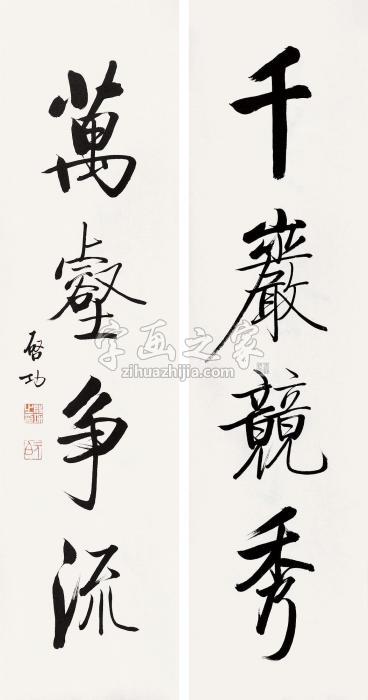 千巖競秀
萬壑争流
啓功
字画之家
zihuazhijia.com